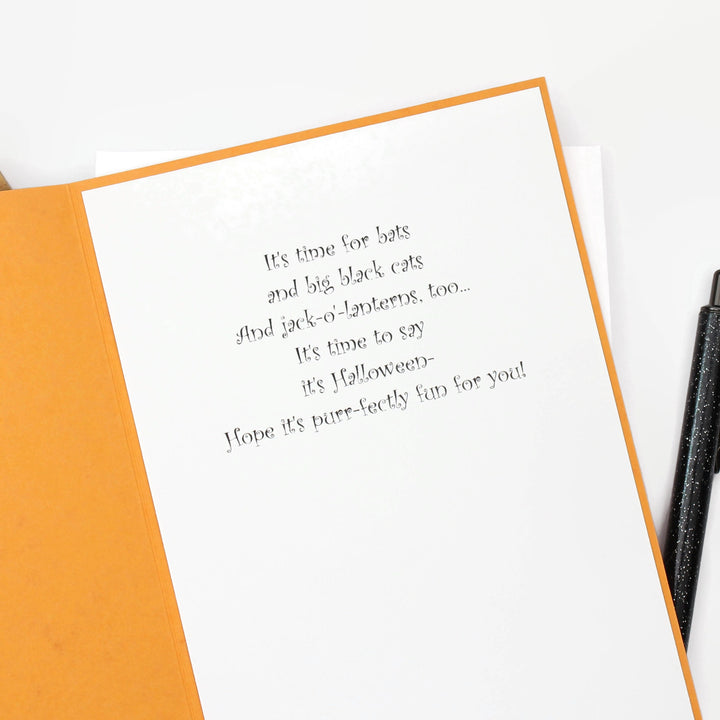 It's time for bats
and big black cats
And jack-o'-lanterns, too...
It's time to say
it's Halloween-
Hope it's purr-fectly fun for you!